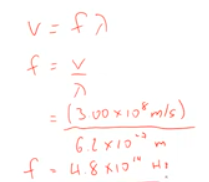 v = f λ
f = v / λ
= (3.00 × 10⁸ m/s) / 6.2 × 10⁻⁷ m
f = 4.8 × 10¹⁴ Hz